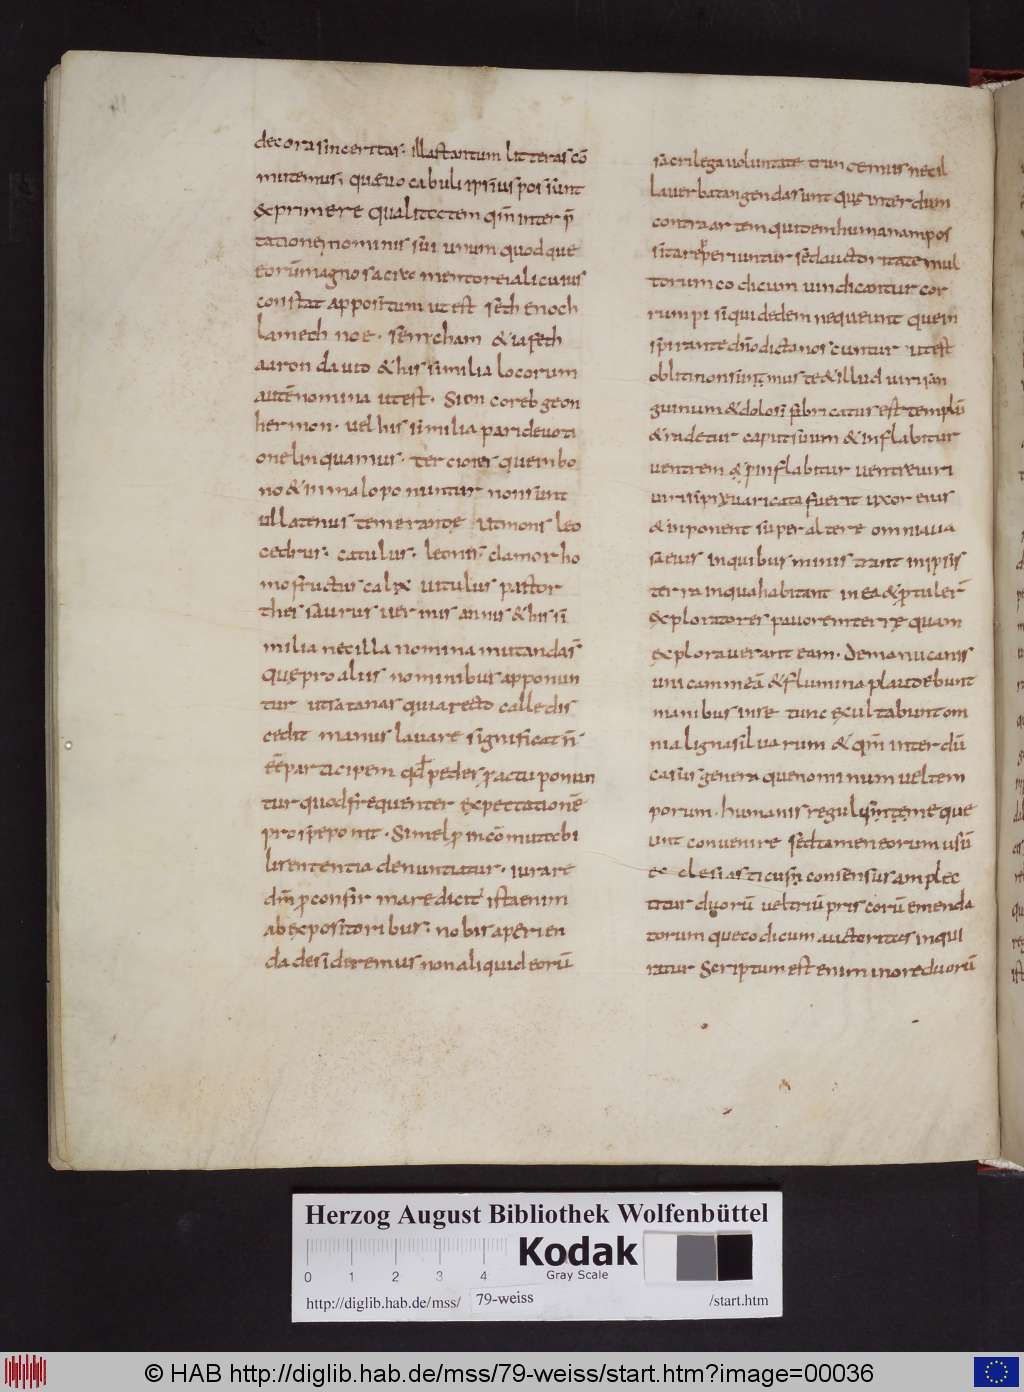 decora sinceritas. illas tantum litteras cō
mutemus. quæ vocabuli ipsius possunt
exprimere qualitatem qm̄ inter p̄
tatione nominis sui unum quodque
eorū magno sacramento rei alicuius
constat appositum ut est seth enoch
lamech noe. sem cham & iafeth
aaron david & his similia locorum
autē nomina ut est. Sion coreb geon
hermon. vel his similia pari devoti
one linquamus. Tercio res quę in bo
no & in malo ponuntur non sunt
ullatenus temerandę ut mons leo
cedrus. catulus. leonis. clamor ho
mo fructus calix vitulus pastor
thesaurus vermis annus & his si
milia nec illa nomina mutandasͣ
Quę pro aliis nominibus apponun
tur ut satanas qui a recto calle dis
cedit manus lavare significat n̄
eē participem qd̄ pedes p̱ actu ponun
tur quod frequenter expectationē
pro spe ponit. Simel p̱ incōmutabi
li sententia denuntiatur. iurare
dm̄ p̱ confirmare dicit ista enim
ab expositoribus. nobis aperien
da desideremus non aliquid eorū
sacrilega voluntate truncemus nec il
la verba tangenda sunt quę interdum
contra artem quidem humanam pos
sita reperiuntur sed auctoritate mul
torum codicum vindicantur cor
rumpi siquidedem nequeunt quem
spirante dn̄o dicta noscuntur ut est
obliti non sumus te & illud viri san
guinum & dolosi fabricatus est templū
& radetur caput suum & inflabitur
ventrem & p̱ inflabitur ventre viri
viri si p̱varicata fuerit uxor eius
& inponent super altare omnia va
sa eius in quibus ministrant in ipsis
terra in qua habitant in ea & p̱tulerī
exploratores pavorem terre quam
exploraverant eam. de manu canis
unicam meā & flumina plaudebunt
manibus in se tunc exultabunt om
nia ligna silvarum & qm̄ interdū
casus genera que nominum vel tem
porum. humanis regulis minime que
unt convenire sed tamen eorum usū
ecclesiasticus consensus amplec
titur duorū vel triū priscorū emenda
torum que codicum auctoritas inqui
ratur Scriptum est enim in ore duorū
Herzog August Bibliothek Wolfenbüttel
0 1 2 3 4
Kodak
Gray Scale
http://diglib.hab.de/mss/ 79-weiss /start.htm
© HAB http://diglib.hab.de/mss/79-weiss/start.htm?image=00036